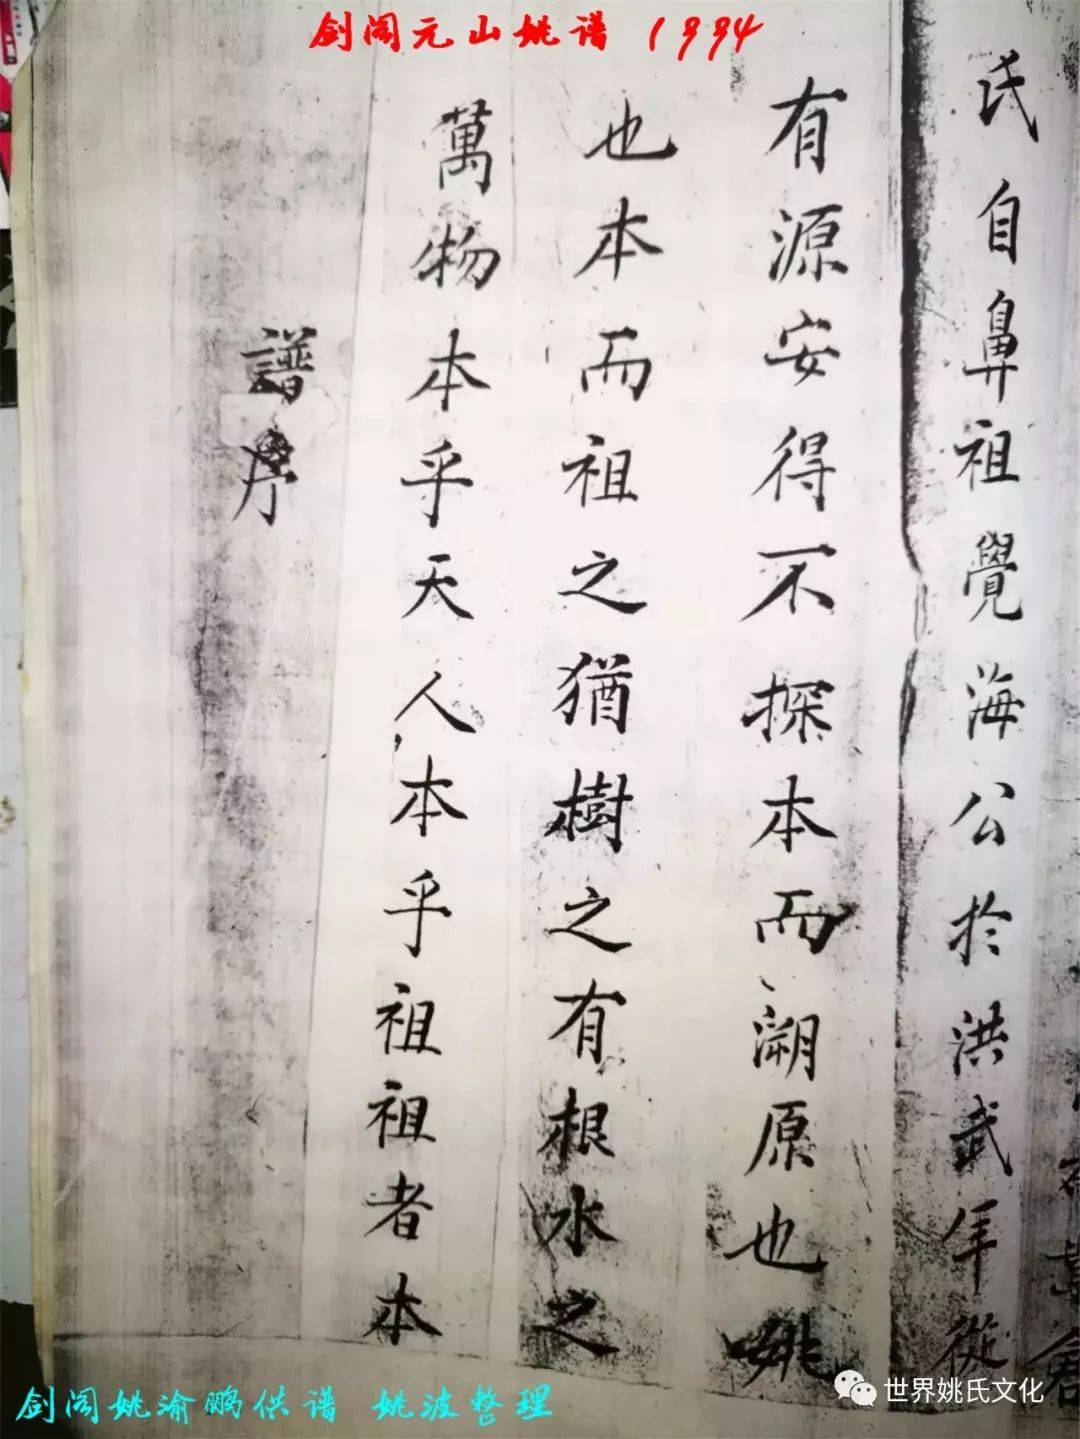 剑阁元山姚谱 1994
譜序
萬物本乎天人本乎祖祖者本
也本而祖之猶樹之有根水之
有源安得不探本而溯原也姚
氏自鼻祖覺海公於洪武年從
剑阁姚渝鹏供谱 姚波整理
世界姚氏文化